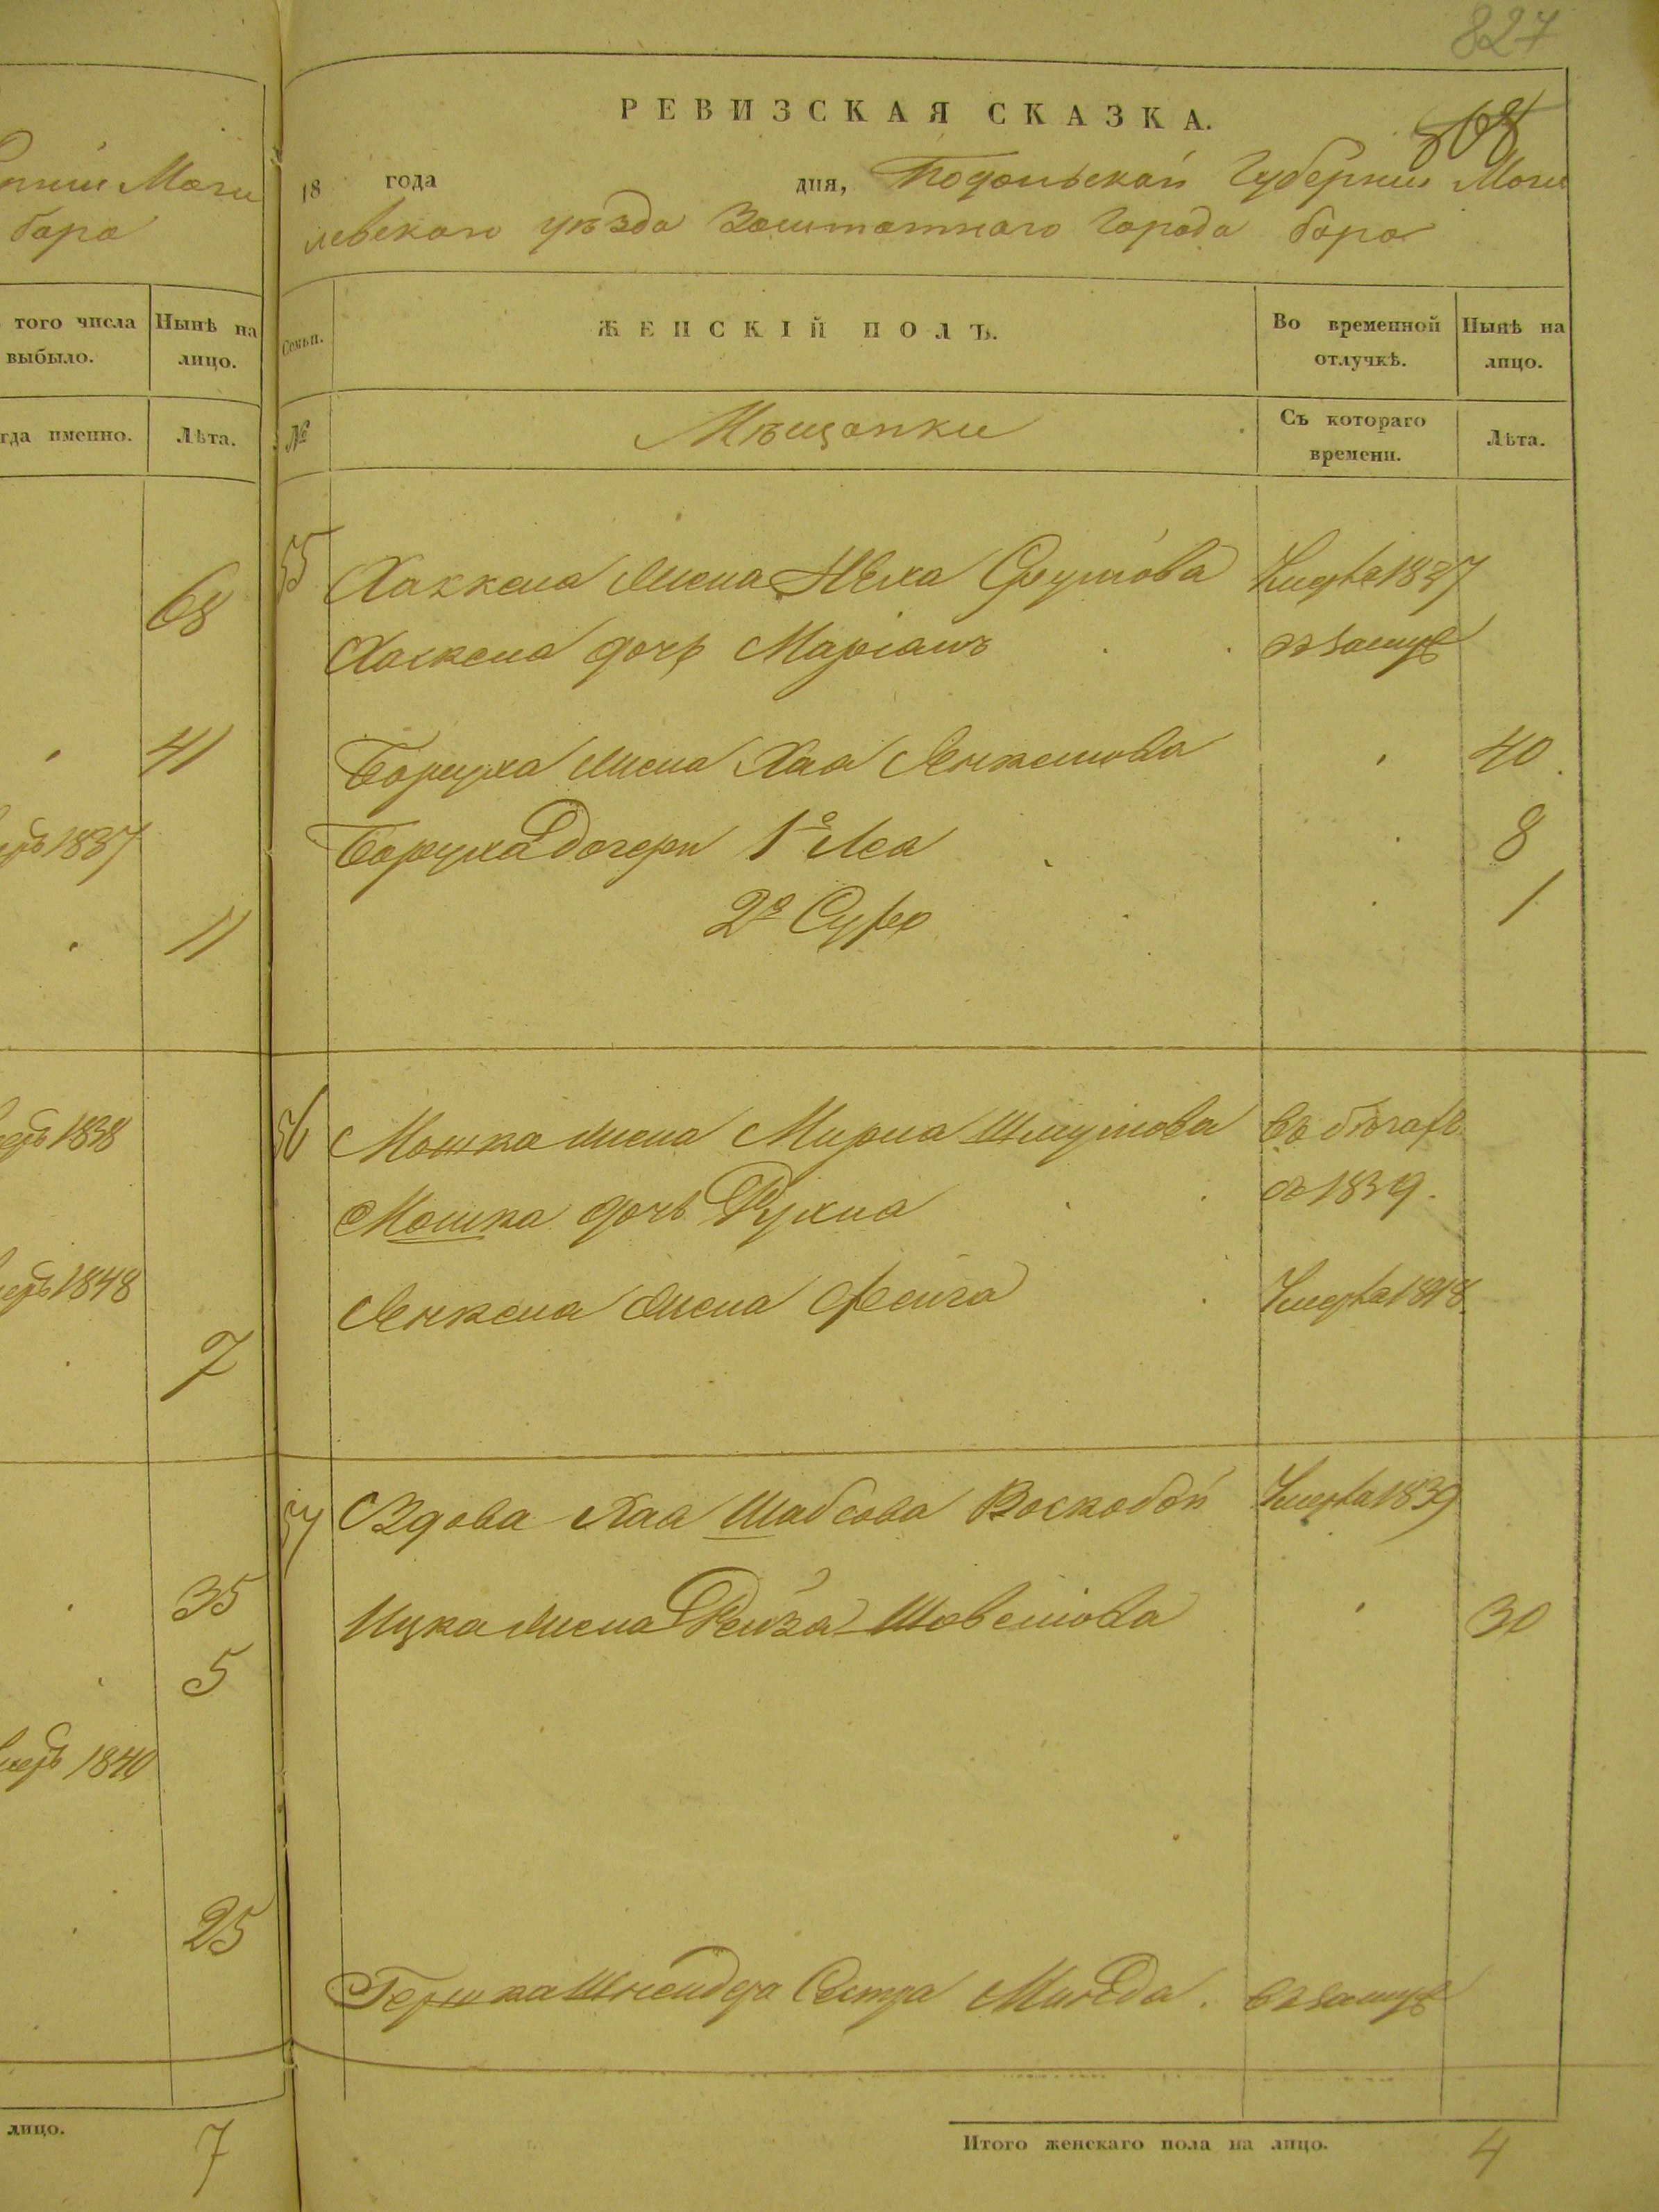 827
РЕВИЗСКАЯ СКАЗКА.
868
18 года дня, Подольской Губернии Моги
левского уѣзда Заштатнаго Города Бара
Моги
бара
того числа выбыло.
Нынѣ на лицо.
Семьи.
ЖЕНСКІЙ ПОЛЪ.
Во временной отлучкѣ.
Нынѣ на лицо.
гда именно.
Лѣта.
№
Мѣщанки
Съ котораго времени.
Лѣта.
68
55 Хаскела жена Неха Сруліова Умерла 1847
Хаскела дочь Маріамъ въ замуж
41
Боруха жена Хая Янкелиова 40
1837
Боруха дочери 1я Лея 8
11
2я Сура 1
1838
56 Мошка жена Мирла Шмулиова въ бѣгахъ
Мошка дочь Рухла съ 1839.
1848
Янкеля жена Фейга Умерла 1848
7
57 Вдова Хая Шабсова Воскобой Умерла 1839
35
Ицка жена Рейза Шовелиова 30
5
1840
25
Гершка Шнейдера Сестра Минда. въ замуж
лицо.
7
Итого женскаго пола на лицо. 4